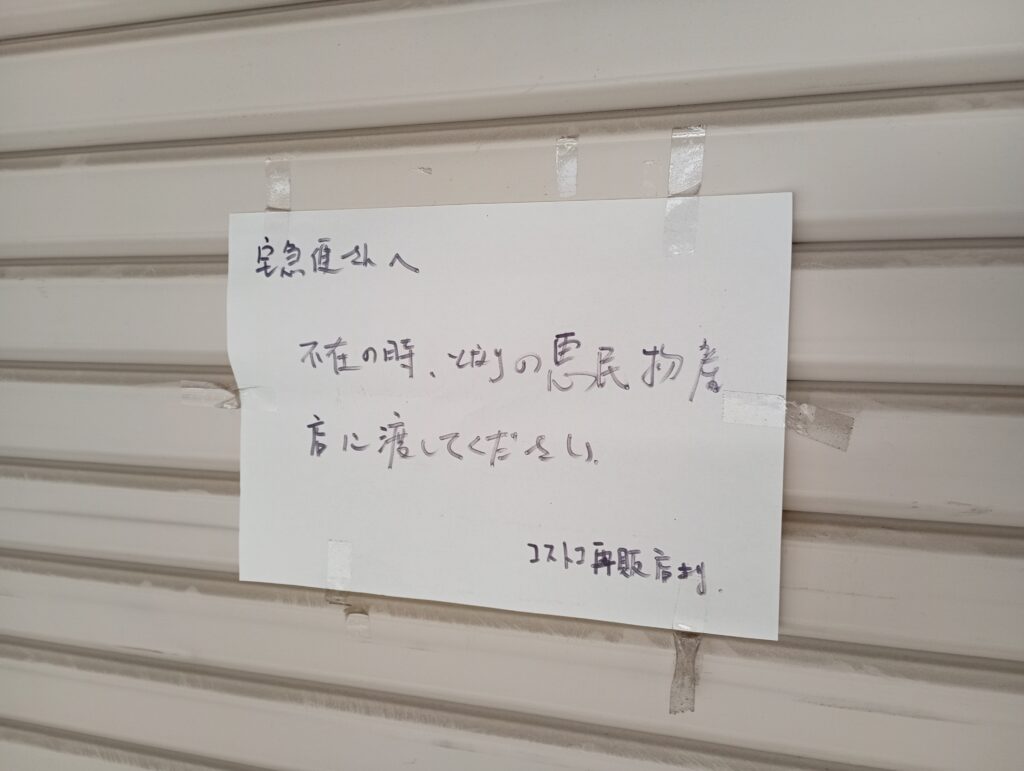 宅急便さんへ
不在の時、となりの恵民物産
店に渡してください.
コストコ再販店より.